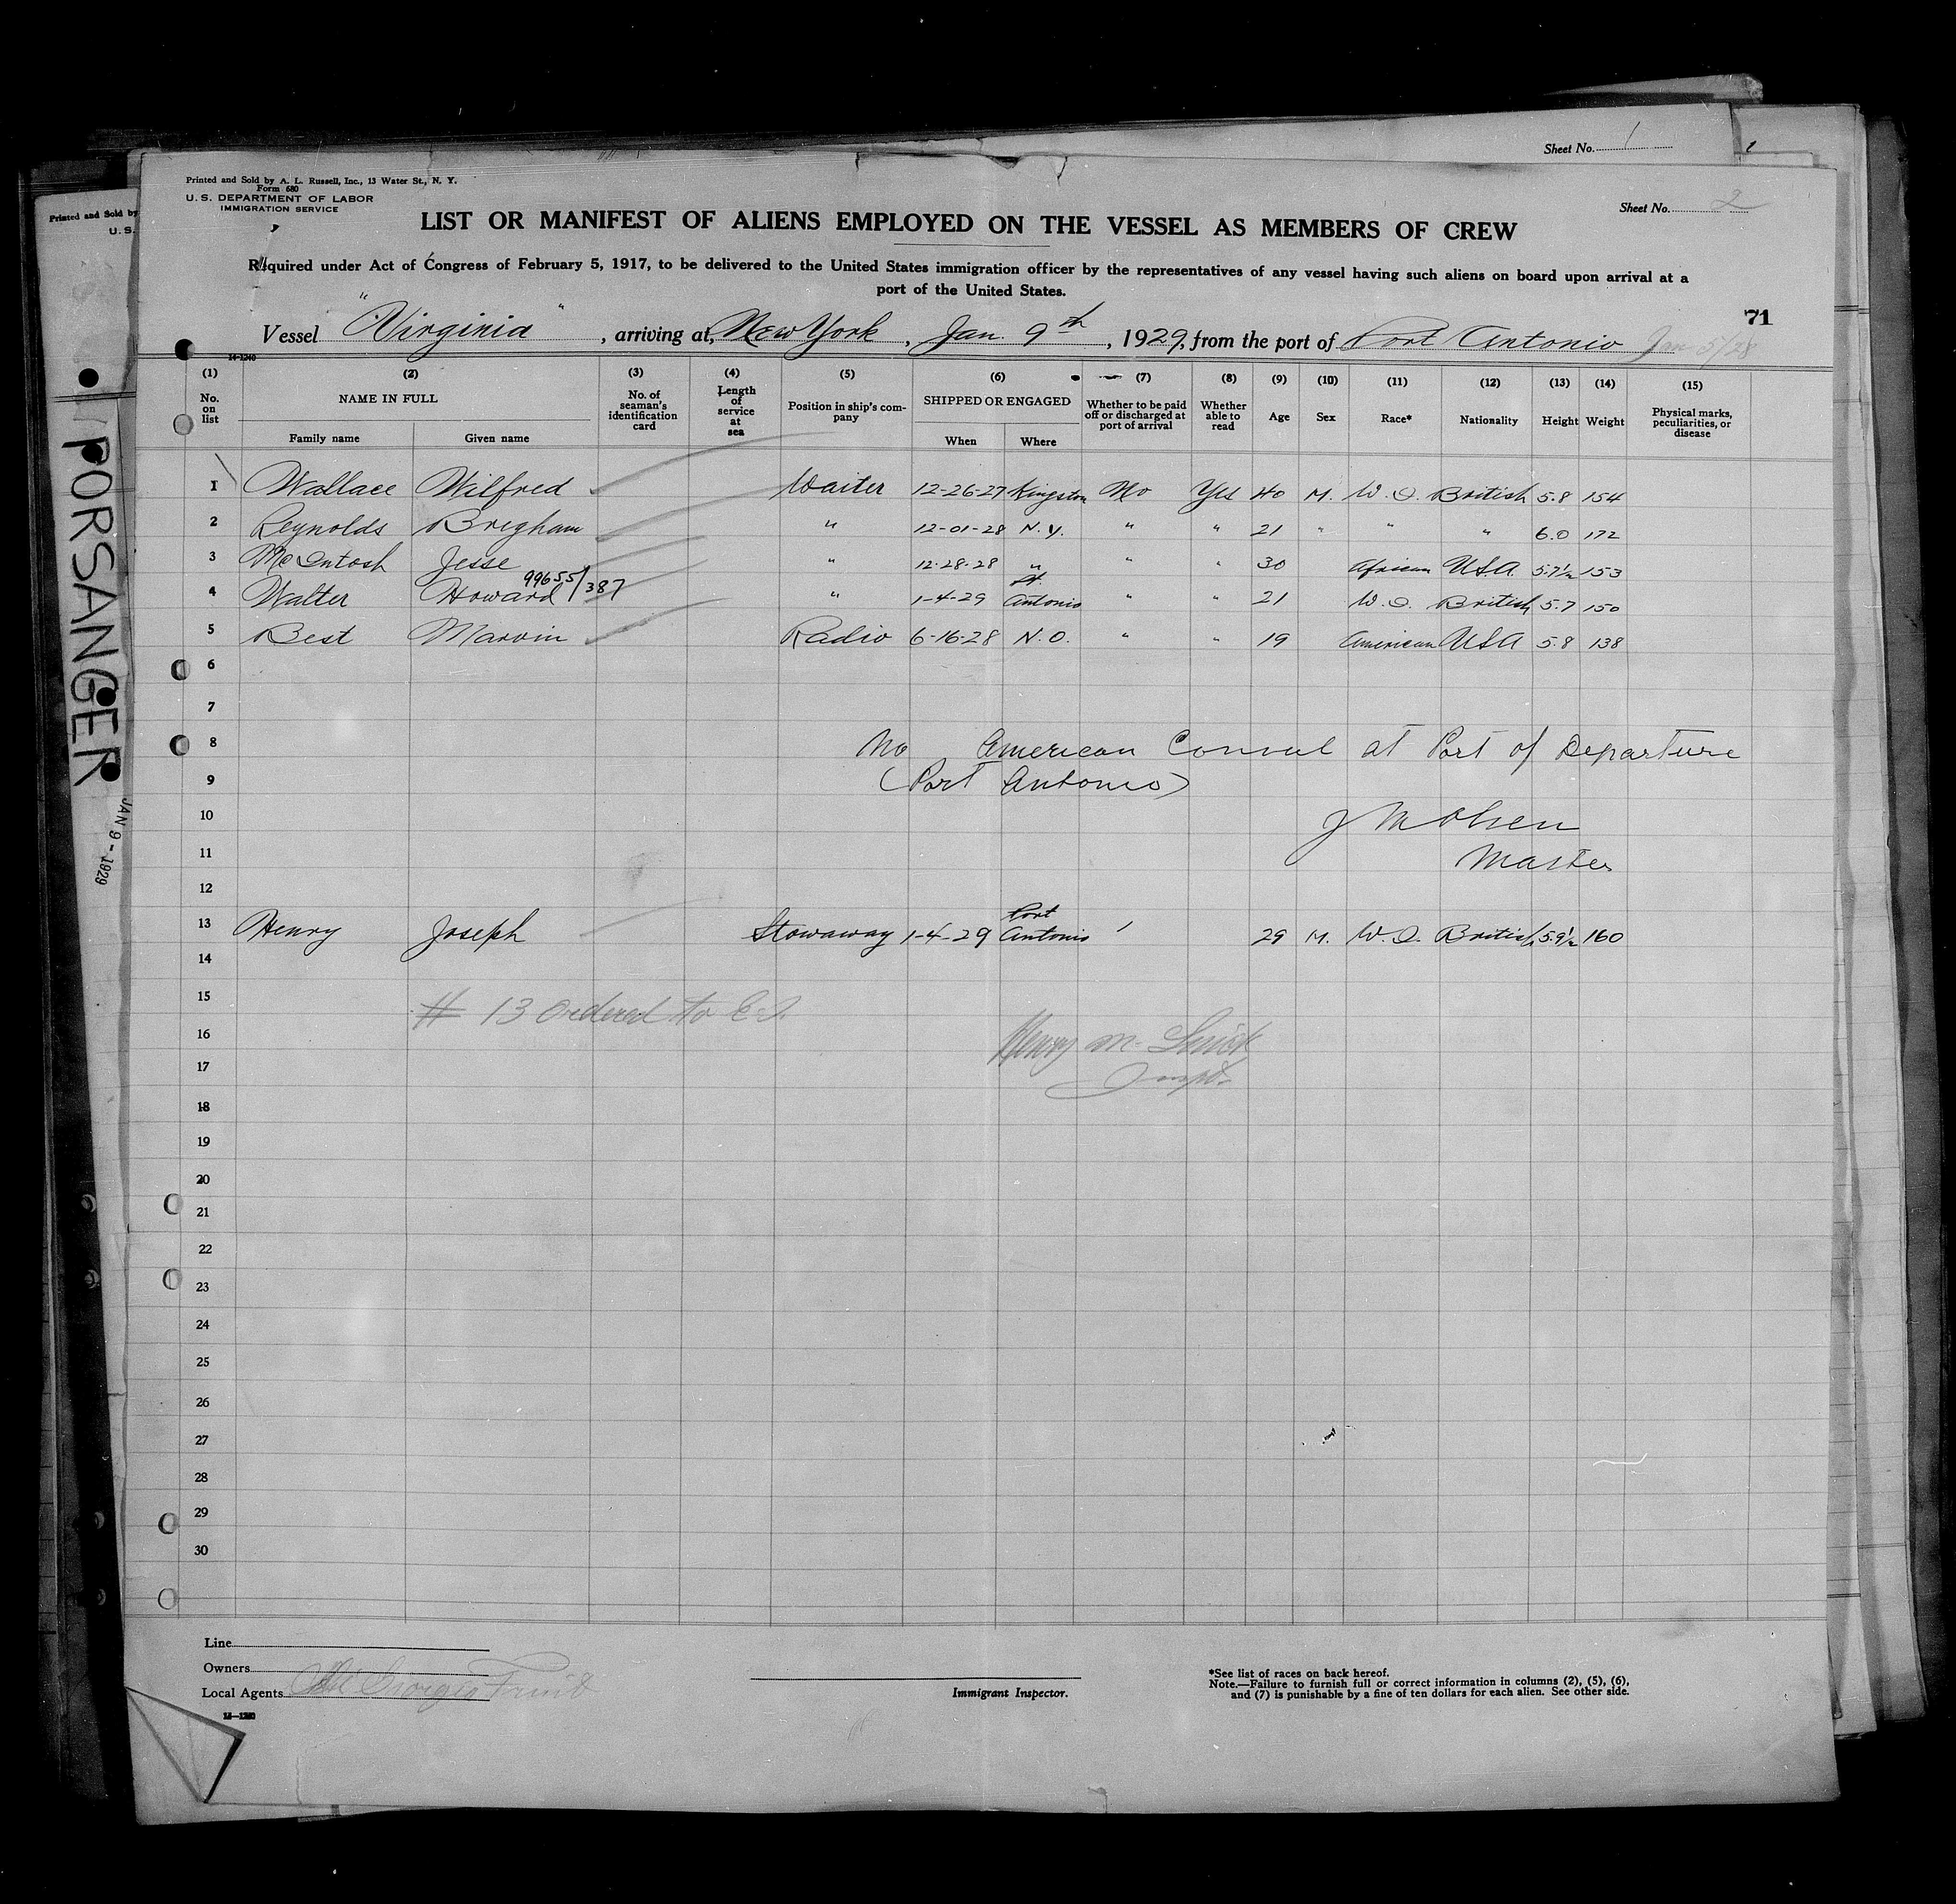 Sheet No. 1
Printed and Sold by A. L. Russell, Inc., 13 Water St., N. Y.
Form 680
U. S. DEPARTMENT OF LABOR
IMMIGRATION SERVICE
Sheet No. 2
Printed and Sold by
U. S.
LIST OR MANIFEST OF ALIENS EMPLOYED ON THE VESSEL AS MEMBERS OF CREW
Required under Act of Congress of February 5, 1917, to be delivered to the United States immigration officer by the representatives of any vessel having such aliens on board upon arrival at a
port of the United States.
71
Vessel "Virginia", arriving at, New York, Jan. 9th, 1929, from the port of Port Antonio Jan 5/28
14-1240
(1) (2) (3) (4) (5) (6) (7) (8) (9) (10) (11) (12) (13) (14) (15)
No. on list
NAME IN FULL
Family name Given name
No. of seaman's identification card
Length of service at sea
Position in ship's company
SHIPPED OR ENGAGED
When Where
Whether to be paid off or discharged at port of arrival
Whether able to read
Age
Sex
Race*
Nationality
Height
Weight
Physical marks, peculiarities, or disease
1 Wallace Wilfred Waiter 12-26-27 Kingston No Yes 40 M. W. I. British 5.8 154
2 Reynolds Brigham " 12-01-28 N.Y. " " 21 " " " 6.0 172
3 McIntosh Jesse " 12-28-28 " " " 30 African U.S.A. 5.7½ 153
99655/387
4 Walter Howard " 1-4-29 Pt. Antonio " " 21 W. I. British 5.7 150
5 Best Marvin Radio 6-16-28 N.O. " " 19 American USA 5.8 138
6
7
8 No American Consul at Port of Departure
9 (Port Antonio)
10 J M Olsen
11 Master
12
13 Henry Joseph Stowaway 1-4-29 Port Antonio 29 M. W. I. British 5.9½ 160
14
15 # 13 ordered to E.I.
16 Henry M.
17 Insptr.
18
19
20
21
22
23
24
25
26
27
28
29
30
Line
Owners
Local Agents Fruit
14-1240
Immigrant Inspector.
*See list of races on back hereof.
Note.—Failure to furnish full or correct information in columns (2), (5), (6),
and (7) is punishable by a fine of ten dollars for each alien. See other side.
PORSANGER
JAN 9 - 1929